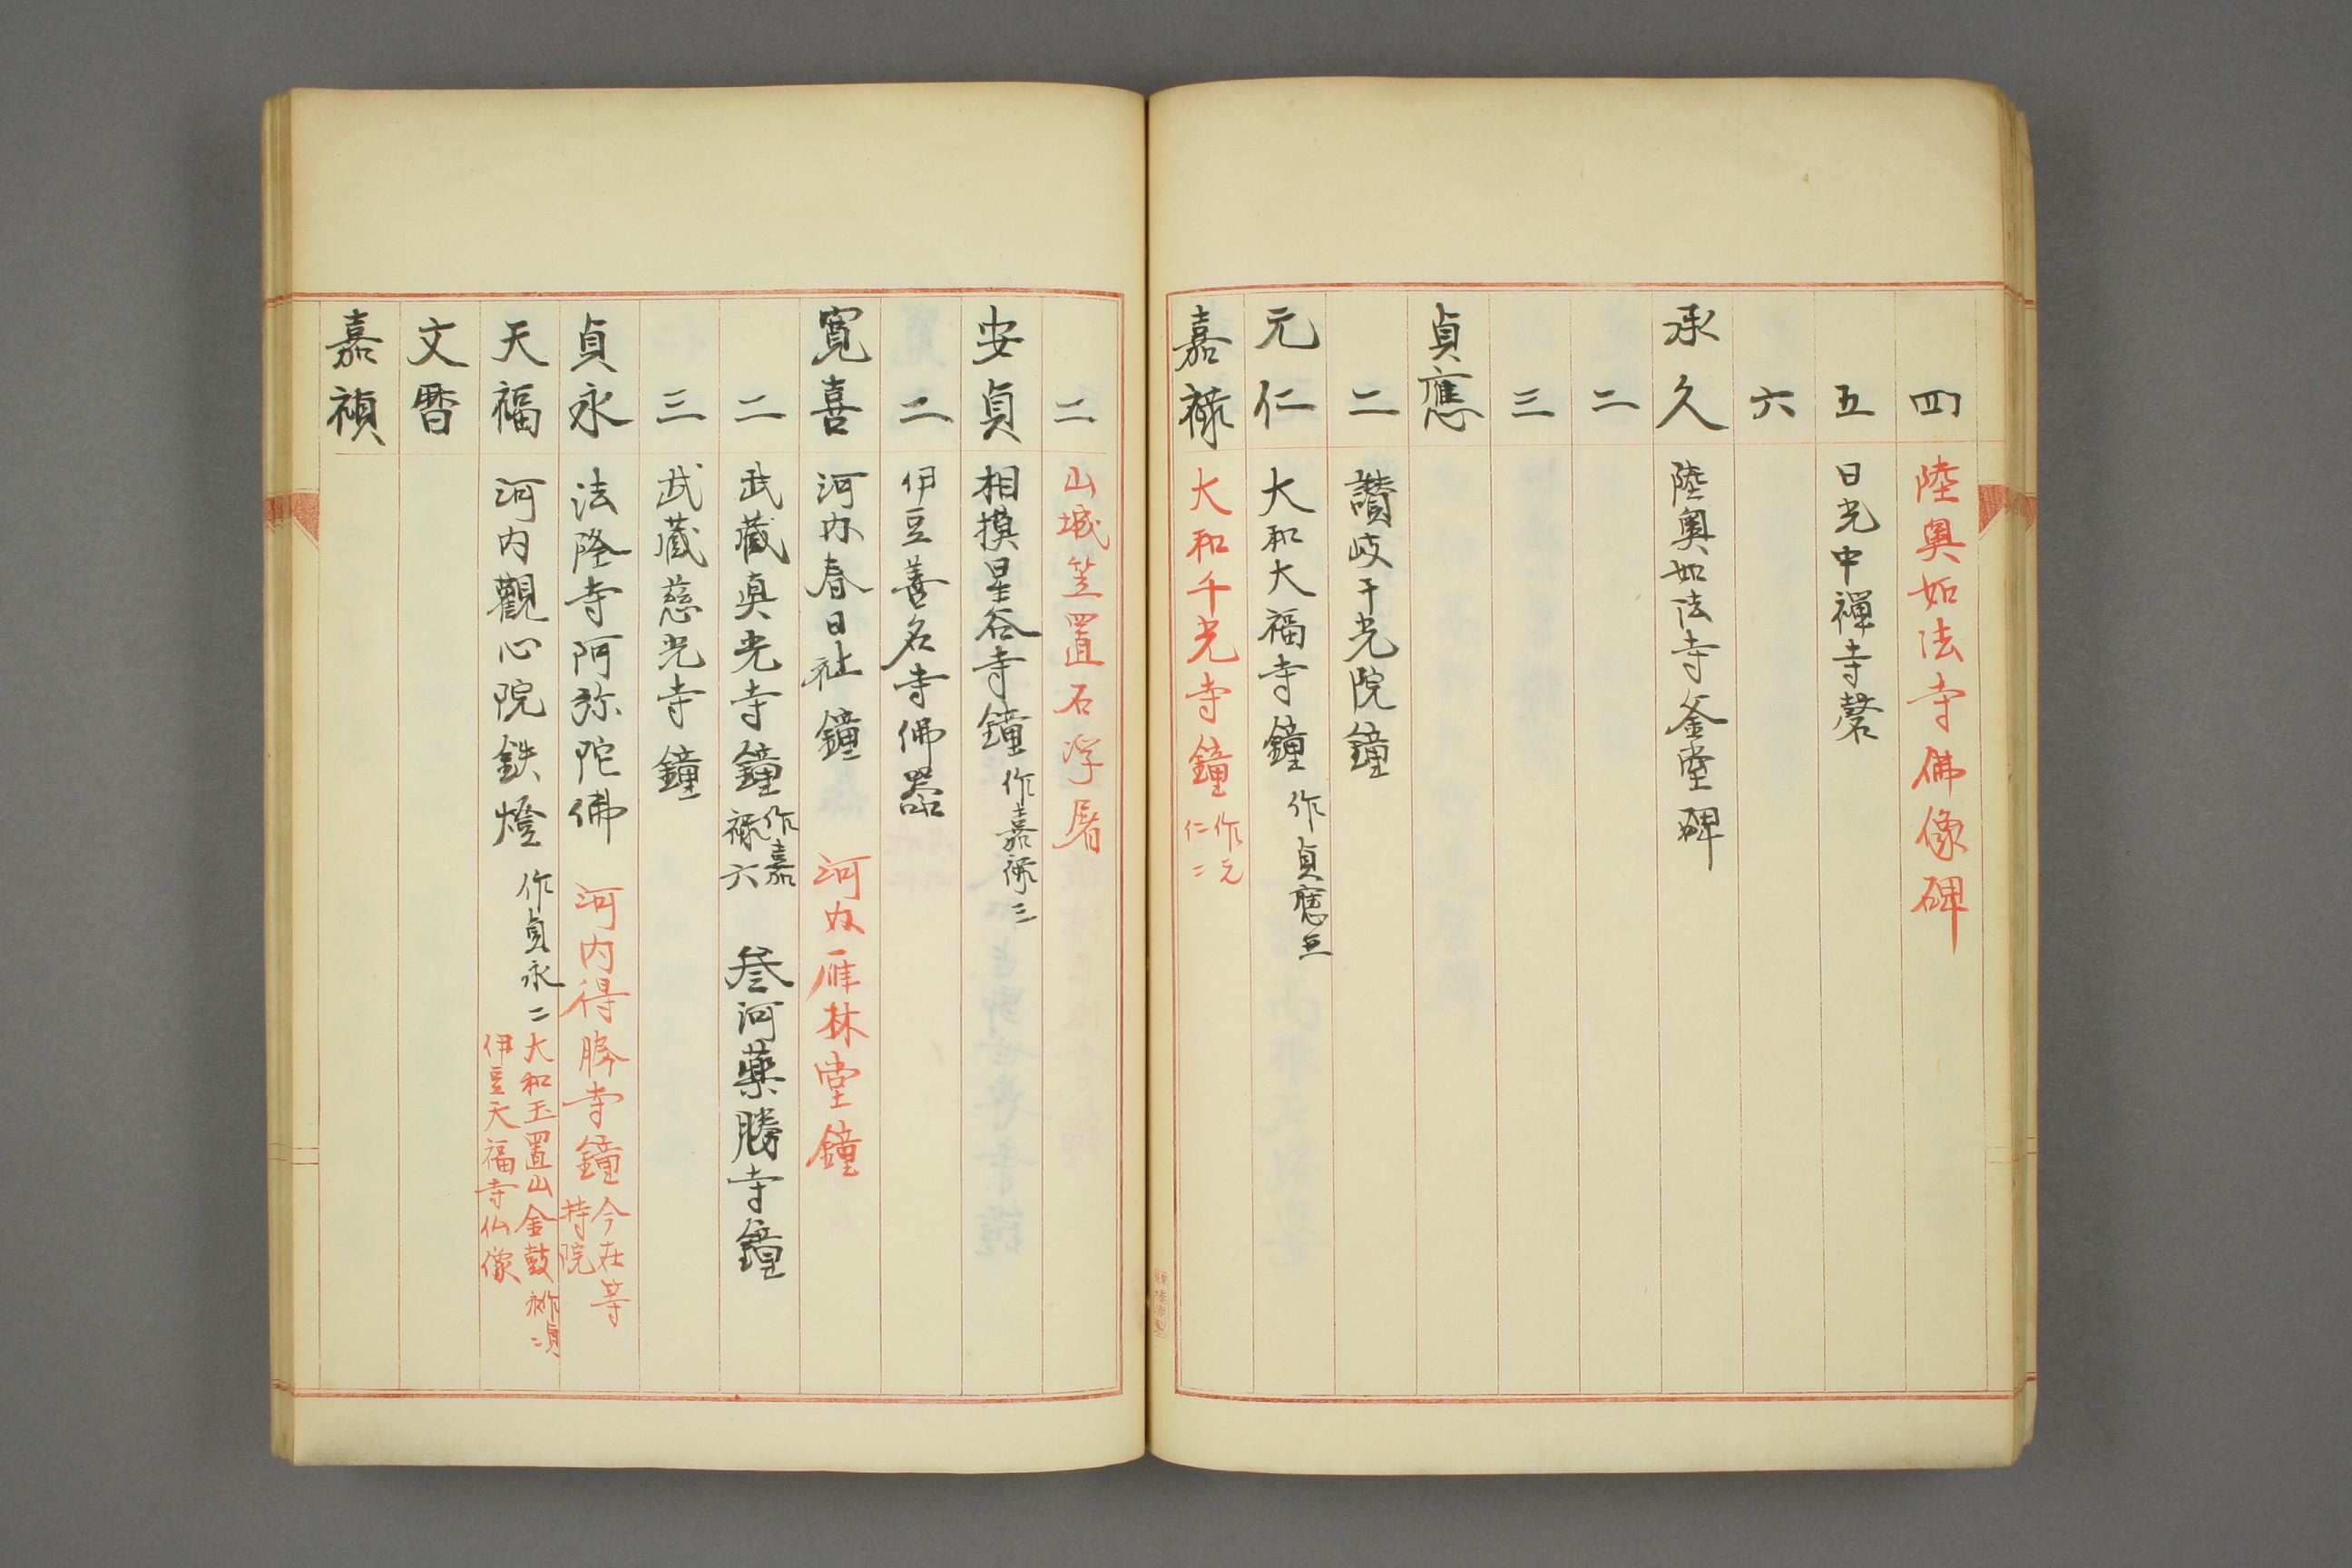 四 陸奥如法寺佛像碑
五 日光中禅寺磬
六
承久 陸奥如法寺釜堂碑
二
三
貞應
二 讃岐千光院鐘
元仁 大和大福寺鐘 作貞應五
嘉禄 大和千光寺鐘 作元仁二
二 山城笠置石浮屠
安貞 相摸星谷寺鐘 作嘉禄三
二 伊豆善名寺佛器
寛喜 河内春日社鐘 河内雁林堂鐘
二 武藏真光寺鐘 作嘉禄六 叄河藥勝寺鐘
三 武藏慈光寺鐘
貞永 法隆寺阿弥陀佛 河内得勝寺鐘 今在等持院
天福 河内觀心院鉄燈 作貞永二 大和玉置山金鼓 作貞永二
伊豆天福寺仏像
文暦
嘉禎